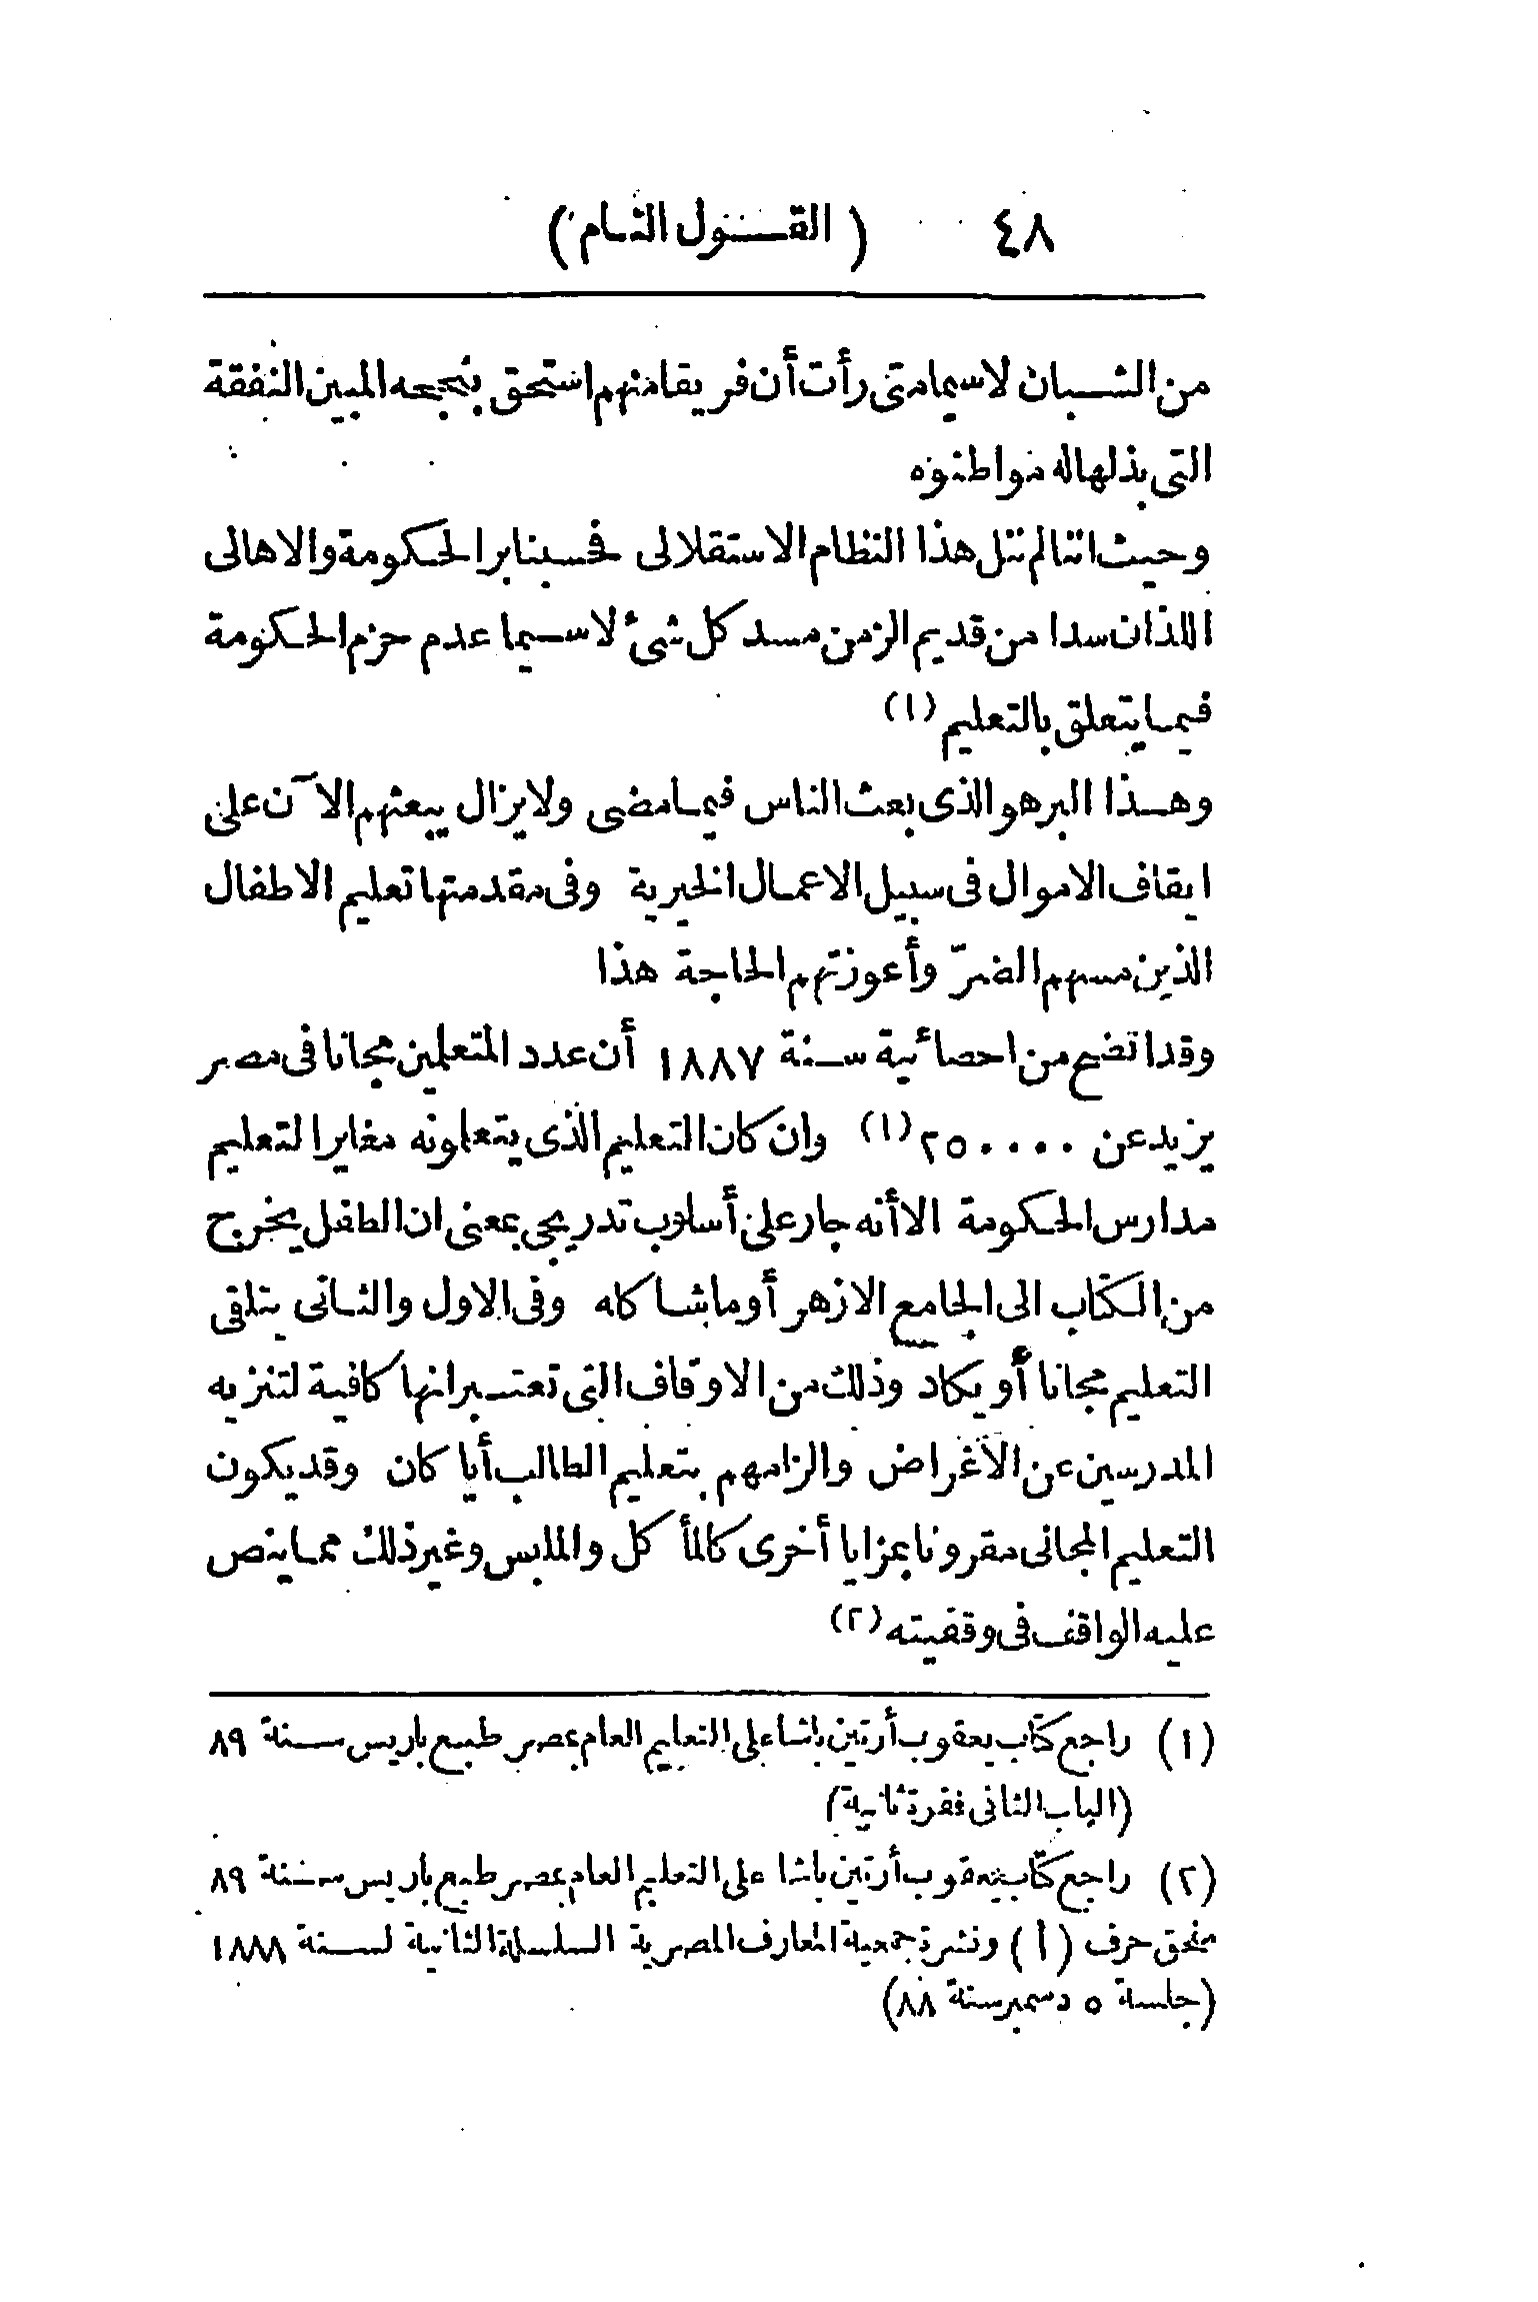 ٤٨ ( القول التام )
من الشبان لاسيما متى رأت أن فريقا منهم استحق بنجحه المبين النفقة
التى بذلها له مواطنوه
وحيث اننا لم ننل هذا النظام الاستقلالى فحسبنا بر الحكومة والاهالى
اللذان سدا من قديم الزمن مسد كل شئ لاسيما عدم حزم الحكومة
فيما يتعلق بالتعليم (١)
وهذا البر هو الذى بعث الناس فيما مضى ولايزال يبعثهم الآن على
ايقاف الاموال فى سبيل الاعمال الخيرية وفى مقدمتها تعليم الاطفال
الذين مسهم الضرّ وأعوزتهم الحاجة هذا
وقد اتضح من احصائية سنة ١٨٨٧ أن عدد المتعلمين مجانا فى مصر
يزيد عن ٢٥٠٠٠٠ (١) وان كان التعليم الذى يتعلمونه مغايرا لتعليم
مدارس الحكومة الا أنه جار على أسلوب تدريجى بمعنى ان الطفل يخرج
من الكتاب الى الجامع الازهر أو ما شاكله وفى الاول والثانى يتلقى
التعليم مجانا أو يكاد وذلك من الاوقاف التى تعتبر انها كافية لتنزيه
المدرسين عن الأغراض والزامهم بتعليم الطالب أيا كان وقد يكون
التعليم المجانى مقرونا بمزايا أخرى كالمأكل والملبس وغير ذلك مما ينص
عليه الواقف فى وقفيته (٢)
(١) راجع كتاب يعقوب أرتين باشا على التعليم العام بمصر طبع باريس سنة ٨٩
(الباب الثانى فقرة ثانية)
(٢) راجع كتاب يعقوب أرتين باشا على التعليم العام بمصر طبع باريس سنة ٨٩
ملحق حرف (أ) ونشرة جمعية المعارف المصرية السلسلة الثانية لسنة ١٨٨٨
(جلسة ٥ دسمبر سنة ٨٨)